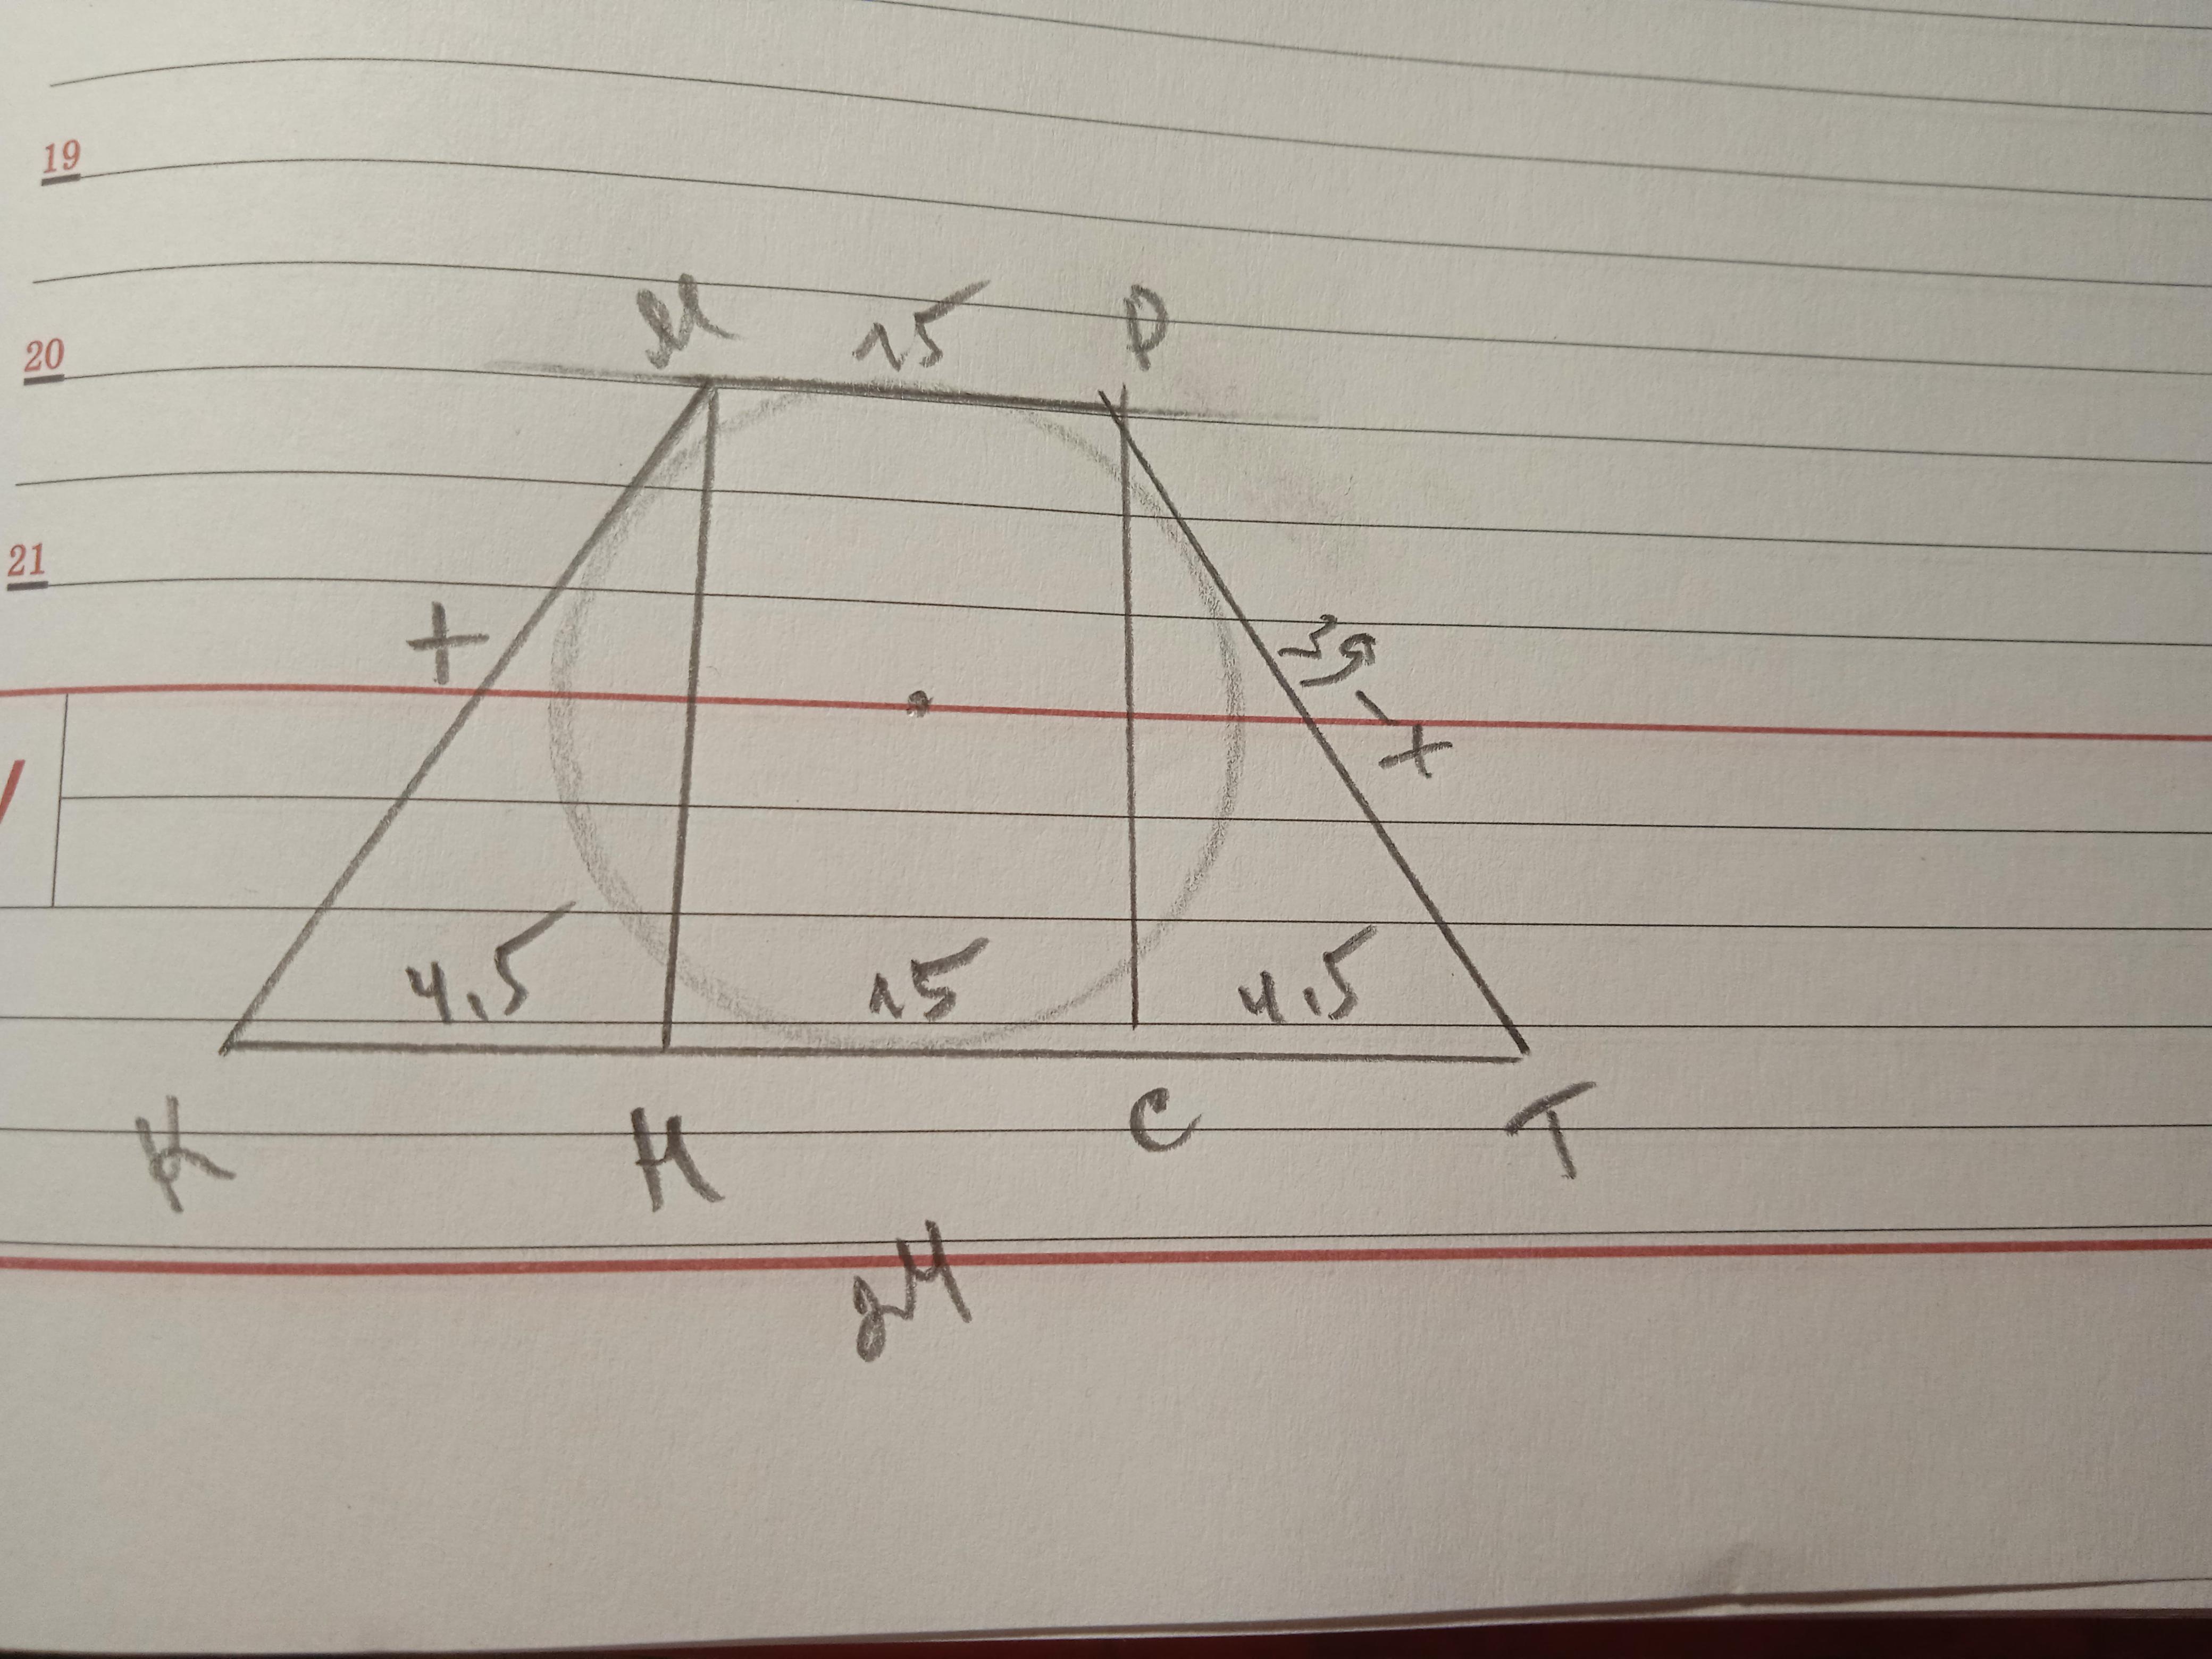 19
20
21
М 15 Р
х
39
- х
4,5 15 4,5
К Н С Т
24